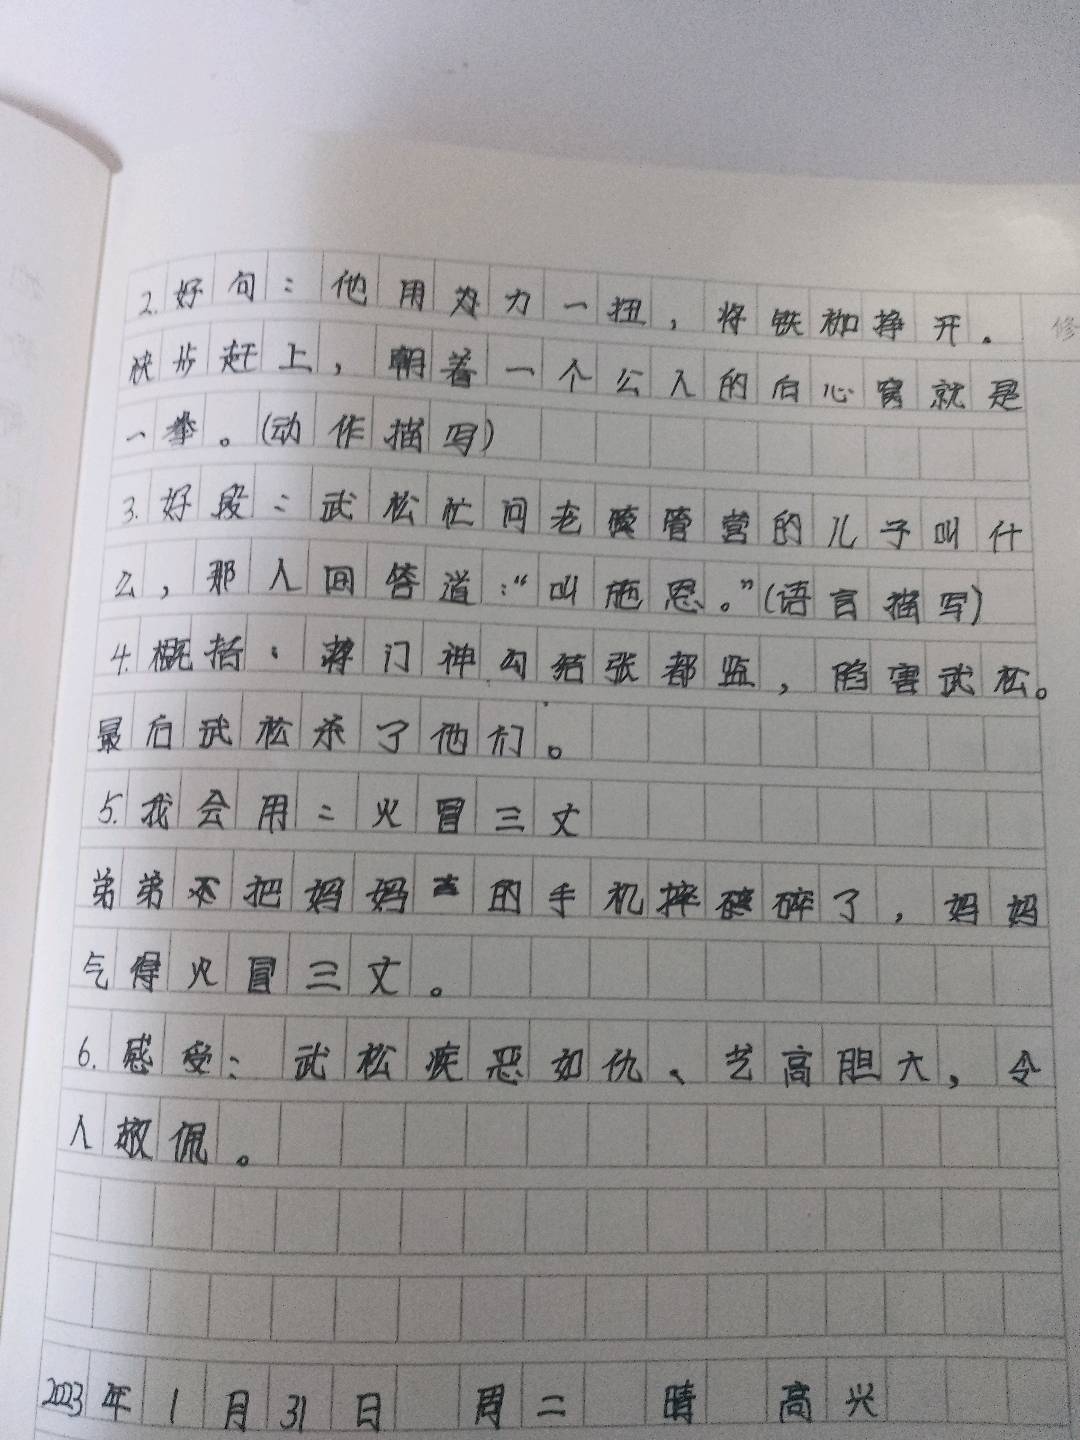 2.好句：他用力一扭，将铁枷挣开。
快步赶上，朝着一个公人的后心窝就是
一拳。(动作描写)
3.好段：武松忙问老管营的儿子叫什
么，那人回答道：“叫施恩。”(语言描写)
4.概括：蒋门神勾结张都监，陷害武松。
最后武松杀了他们。
5.我会用：火冒三丈
弟弟把妈妈的手机摔碎了，妈妈
气得火冒三丈。
6.感受：武松疾恶如仇、艺高胆大，令
人敬佩。
2023年1月31日 周二 晴 高兴